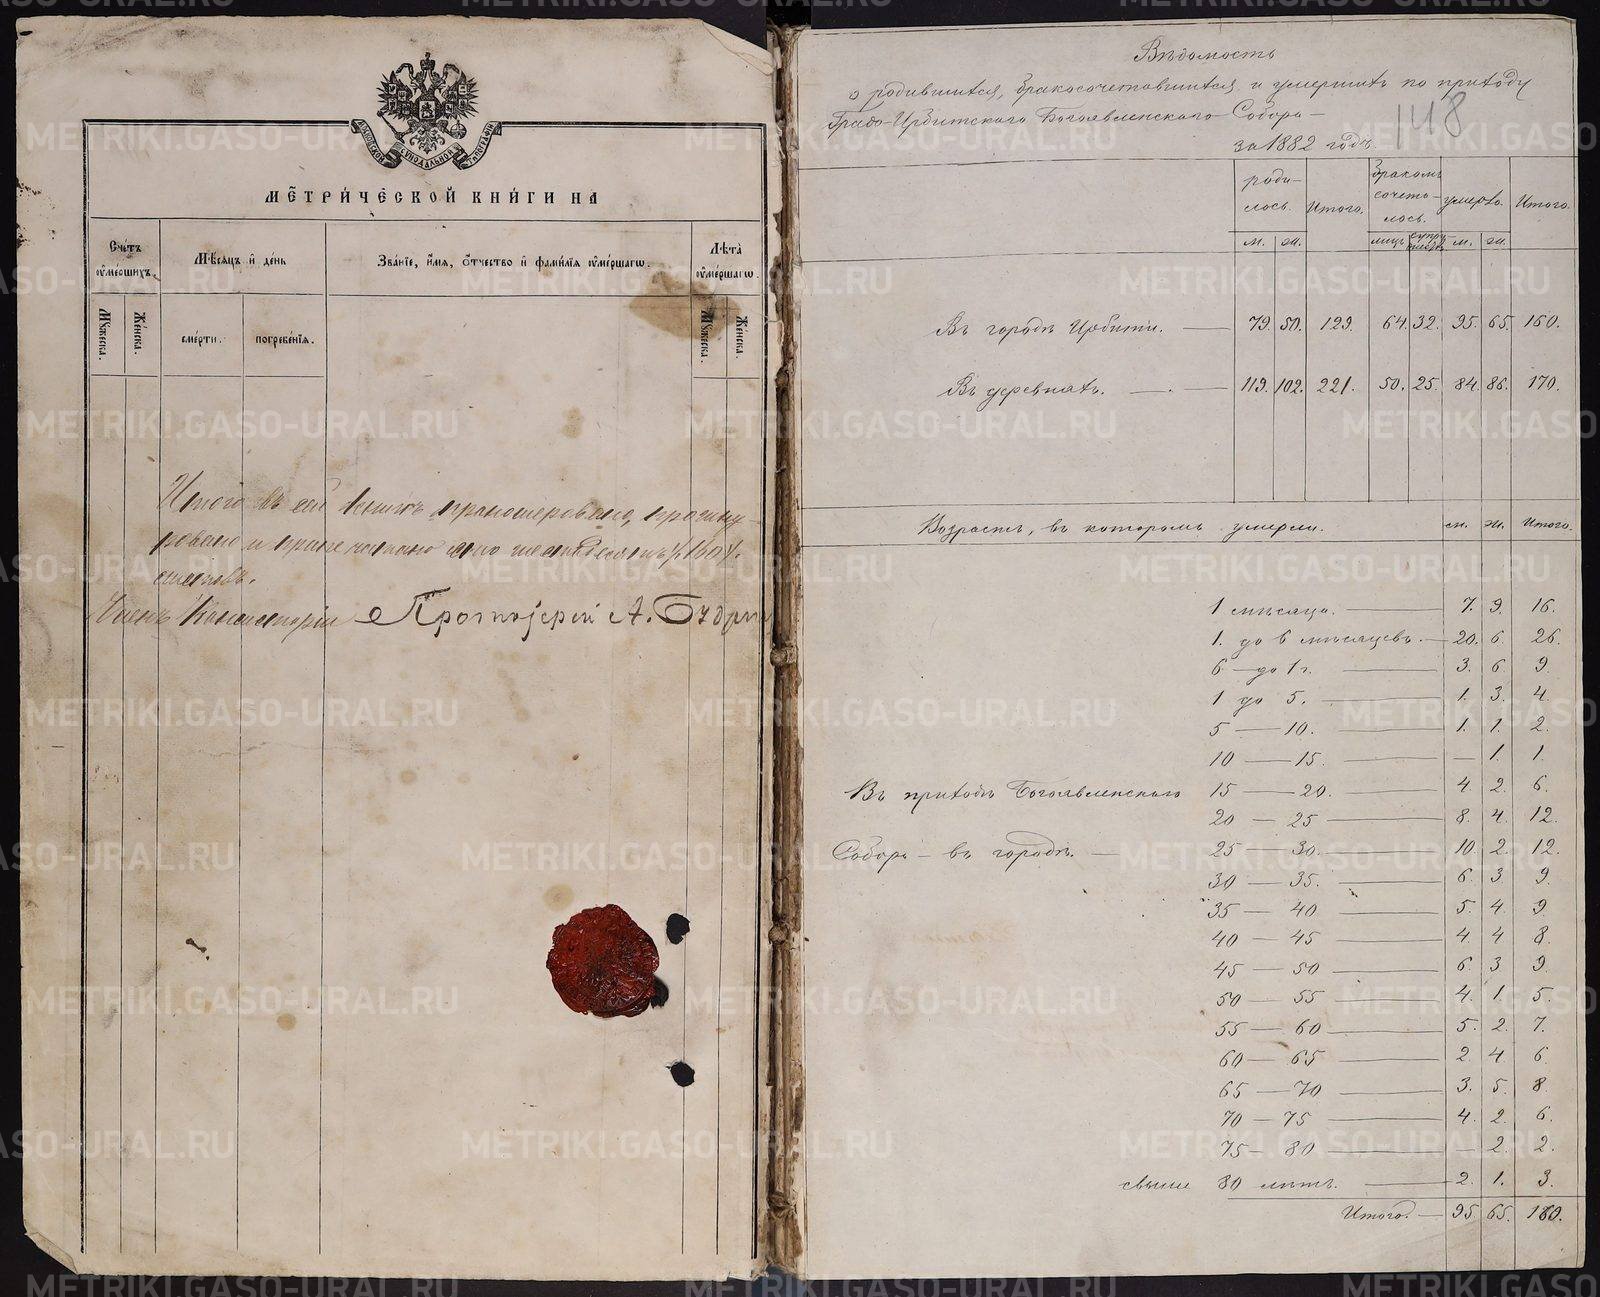 МОСКОВСКОЙ СѴНОДАЛЬНОЙ ТИПОГРАФІИ
МЕТРИ́ЧЕСКОЙ КНИ́ГИ НА
Сче́тъ ѹ҆ме́ршихъ.
Мѣ́сяцъ и҆ день
Зва́ніе, и҆́мя, ѻ҆́тчество и҆ фами́лія ѹ҆ме́ршагѡ.
Лѣ́та ѹ҆ме́ршагѡ.
Мꙋ́жеска.
Же́нска.
сме́рти.
погребе́нія.
Мꙋ́жеска.
Же́нска.
Итого въ сей книгѣ пронумеровано, прошну-
ровано и припечатано сто шестьдесятъ /:160:/
листовъ.
Членъ Консисторіи Протоіерей А. Будри
Вѣдомость
о родившихся, бракосочетавшихся и умершихъ по приходу
Градо-Ирбитскаго Богоявленскаго Собора
за 1882 годъ.
148
роди-
лось.
Итого.
бракомъ
сочета-
лось.
умерло.
Итого.
м. ж. лицъ м. ж.
Въ городѣ Ирбити. — 79. 50. 129. 64. 32. 95. 65. 160.
Въ деревняхъ. — 119. 102. 221. 50. 25. 84. 86. 170.
Возрастъ, въ которомъ умерли. м. ж. Итого.
1 мѣсяца. — 7. 9. 16.
1. до 6 мѣсяцевъ. — 20. 6. 26.
6 — до 1 г. — 3. 6. 9.
1 до 5. — 1. 3. 4.
5 — 10. — 1. 1. 2.
10 — 15. — 1. 1.
Въ приходѣ Богоявленскаго 15 — 20. — 4. 2. 6.
20 — 25 — 8. 4. 12.
Собора — въ городѣ. — 25 — 30. — 10. 2. 12.
30 — 35. — 6. 3. 9.
35 — 40 — 5. 4. 9.
40 — 45 — 4. 4 8.
45 — 50 — 6. 3. 9.
50 — 55 — 4. 1. 5.
55 — 60 — 5. 2. 7.
60 — 65 — 2. 4. 6
65 — 70 — 3. 5. 8
70 — 75 — 4. 2. 6.
75 — 80 — 2. 2.
свыше 80 лѣтъ. — 2. 1. 3.
Итого. — 95. 65. 160.
METRIKI.GASO-URAL.RU